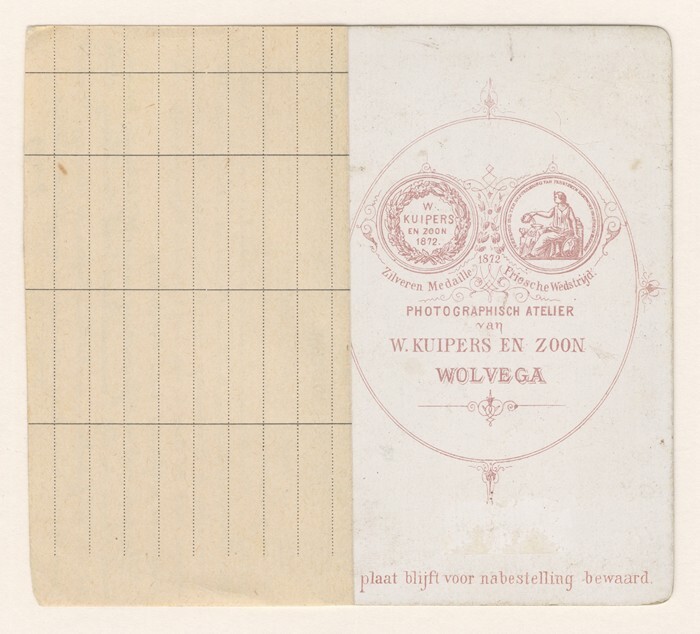 W.
KUIPERS
EN ZOON
1872.
1872
Zilveren Medaille Friesche Wedstrijd.
PHOTOGRAPHISCH ATELIER
van
W. KUIPERS EN ZOON
WOLVEGA
plaat blijft voor nabestelling bewaard.